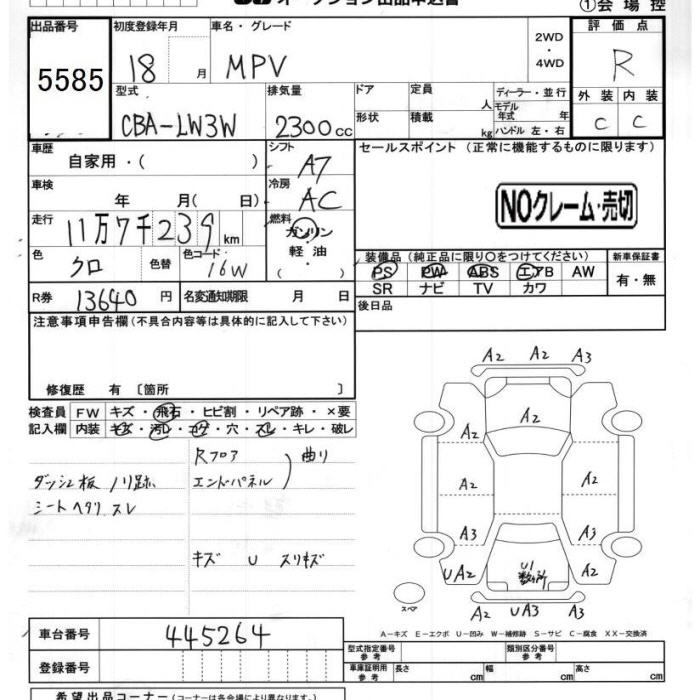 ①会場控
出品番号 初度登録年月 車名・グレード 2WD・4WD 評価点
5585 18 月 MPV R
型式 排気量 ドア 定員 人 ディーラー・並行 外装 内装
CBA-LW3W 2300cc 形状 積載 kg モデル年式 年 ハンドル 左・右 C C
車歴 自家用・( ) シフト A7 セールスポイント (正常に機能するものに限ります)
車検 年 月( 日) 冷房 AC
NOクレーム・売切
走行 11万7千239km 燃料 ガソリン・軽油・( )
色 クロ 色替 色コード 16W 装備品 (純正品に限り○をつけてください) 新車保証書
PS PW ABS エアB AW 有・無
SR ナビ TV カワ
R券 13640円 名変通知期限 月 日 後日品
注意事項申告欄(不具合内容等は具体的に記入して下さい)
修復歴 有 〔箇所 〕
検査員記入欄 FW キズ・飛石・ヒビ割・リペア跡・×要
内装 キズ・汚レ・コゲ・穴・スレ・キレ・破レ
Rフロア
エンドパネル 曲り
ダッシュ板 ノリ跡
シートヘタリ スレ
キズ U スリキズ
A2 A2 A3
A2
A2 A2
A2 A2
A3 A3
UA2 U1 数ヶ所 A2
スペア
A2 UA3 A3
A-キズ E-エクボ U-凹み W-補修跡 S-サビ C-腐食 XX-交換済
車台番号 445264
登録番号
型式指定番号 参考 類別区分番号 参考
車庫証明用 参考 長さ cm 幅 cm 高さ cm
希望出品コーナー(コーナーは各会場により異なります。)